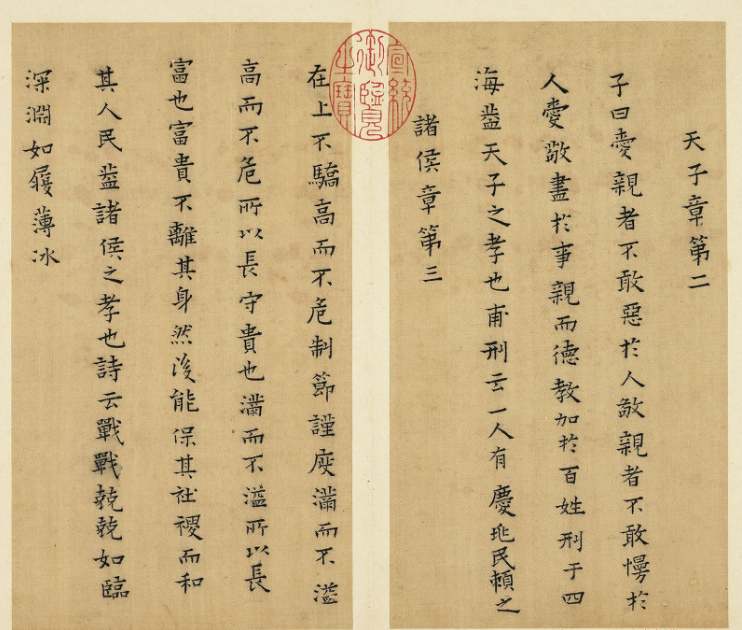 天子章第二
子曰愛親者不敢惡於人敬親者不敢慢於
人愛敬盡於事親而德教加於百姓刑于四
海蓋天子之孝也甫刑云一人有慶兆民賴之
諸侯章第三
在上不驕高而不危制節謹度滿而不溢
高而不危所以長守貴也滿而不溢所以長
富也富貴不離其身然後能保其社稷而和
其人民蓋諸侯之孝也詩云戰戰兢兢如臨
深淵如履薄冰
宣統御覽之寶